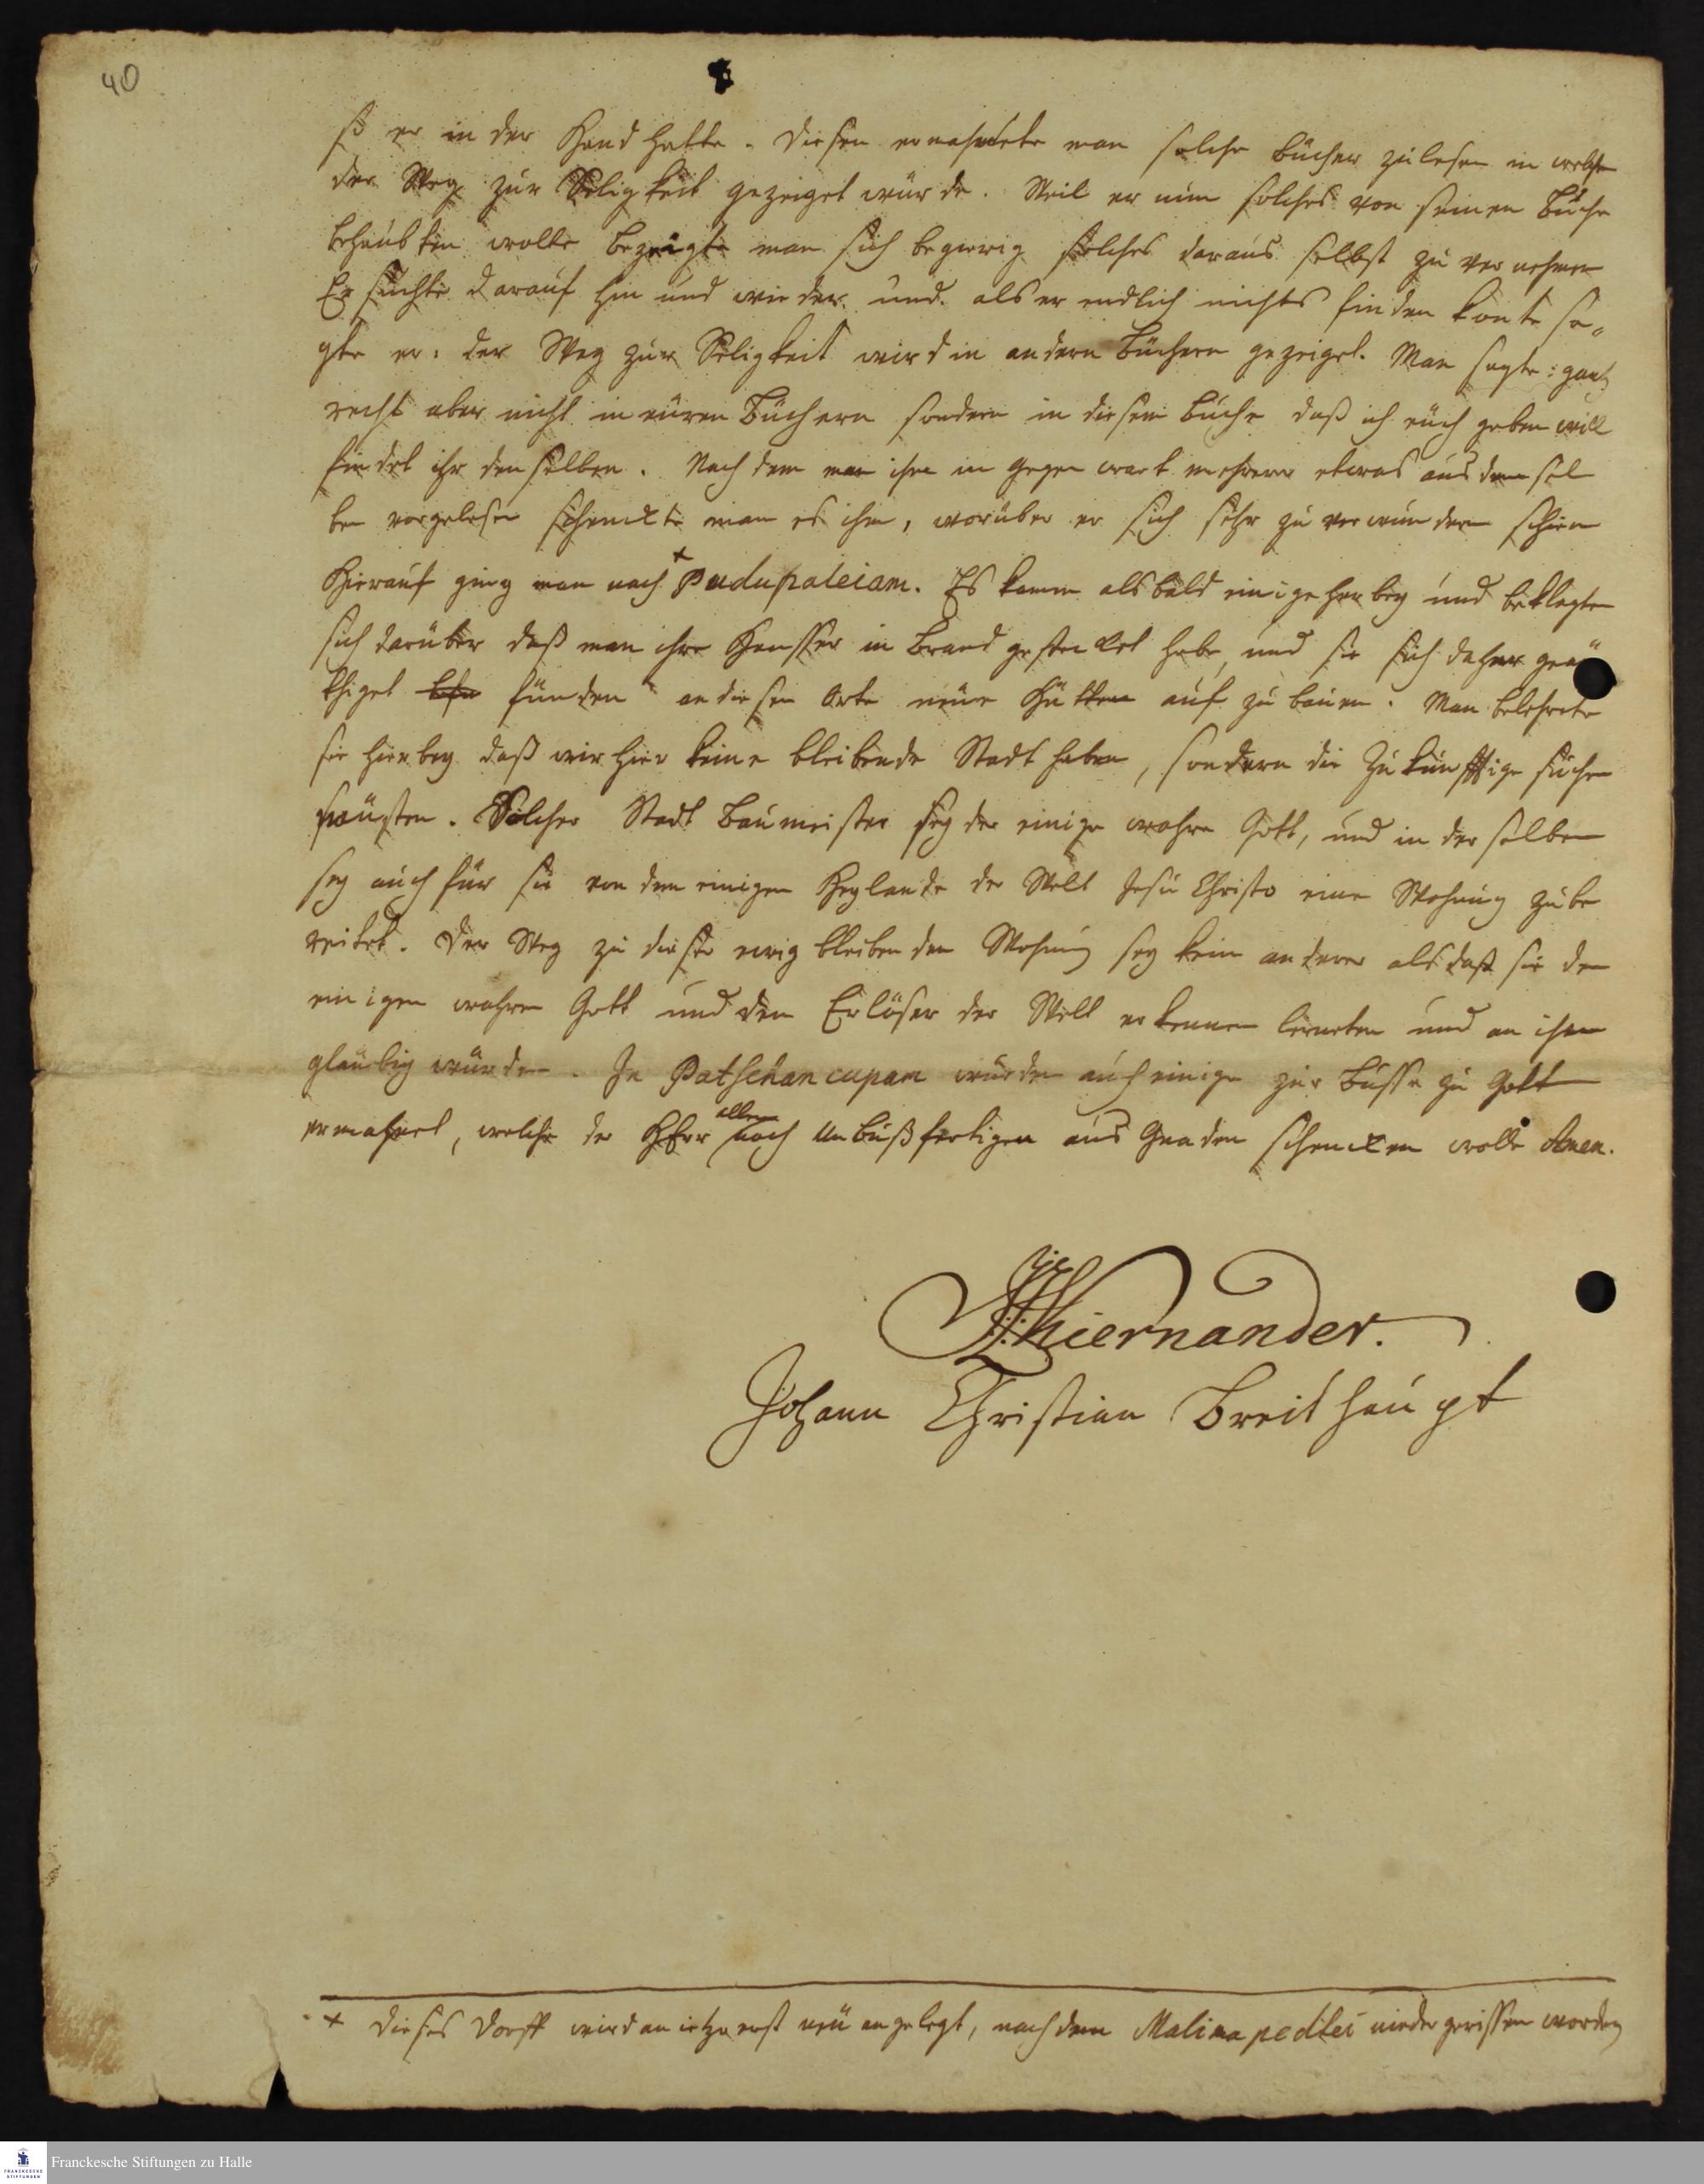 40
ß er in der Hand hatte. Diesen ermahnete man solche Bücher zu lesen in welchen
der Weg zur Seligkeit gezeiget würde. Weil er nun solches von seinen Buche
behaubten wolte bezeigte man sich begierig solches daraus selbst zu vernehmen
Er suchte darauf hin und wieder und als er endlich nichts finden konte sa„
gte er: der Weg zur Seligkeit wird in andern Büchern gezeiget. Man sagte: gantz
recht aber nicht in euren Büchern sondern in diesem Buche daß ich euch geben will
findet ihr denselben. Nach dem man ihm in Gegenwart mehrerer etwas aus demsel
ben vorgelesen schenckte man es ihm, worüber er sich sehr zu verwundern schien
Hierauf ging man nach + Pudupaleiam. Es kamen alsbald einige herbey und beklagten
sich darüber daß man ihre Heusser in Brand gestecket habe, und sie sich daher genö
thiget fünden an diesen Orte neue Hütten auf zu bauen. Man belehrete
sie hierbey daß wir hier keine bleibende Stadt haben, sondern die Zukünfftige suchen
müsten. Solcher Stadt Baumeister sey der einige wahre Gott, und in derselben
sey auch für sie von dem einigen Heylande der Welt Jesu Christo eine Wohnung zube
reitet. Der Weg zu dieser ewig bleibenden Wohnung sey kein anderer als daß sie den
einigen wahren Gott und den Erlöser der Welt erkennen lerneten und an ihn
gläubig würden. In Patschancupam wurden auch einige zur Busse zu Gott
ermahnet, welche der HErr allen noch Unbußfertigen aus Gnaden schencken wolle Amen.
Kiernander.
Johann Christian Breithaupt
+ Dieses Dorff wird an ietzo erst neu angelegt, nach dem Malinapedtei nieder gerissen worden
Franckesche Stiftungen zu Halle
FRANCKESCHE
STIFTUNGEN